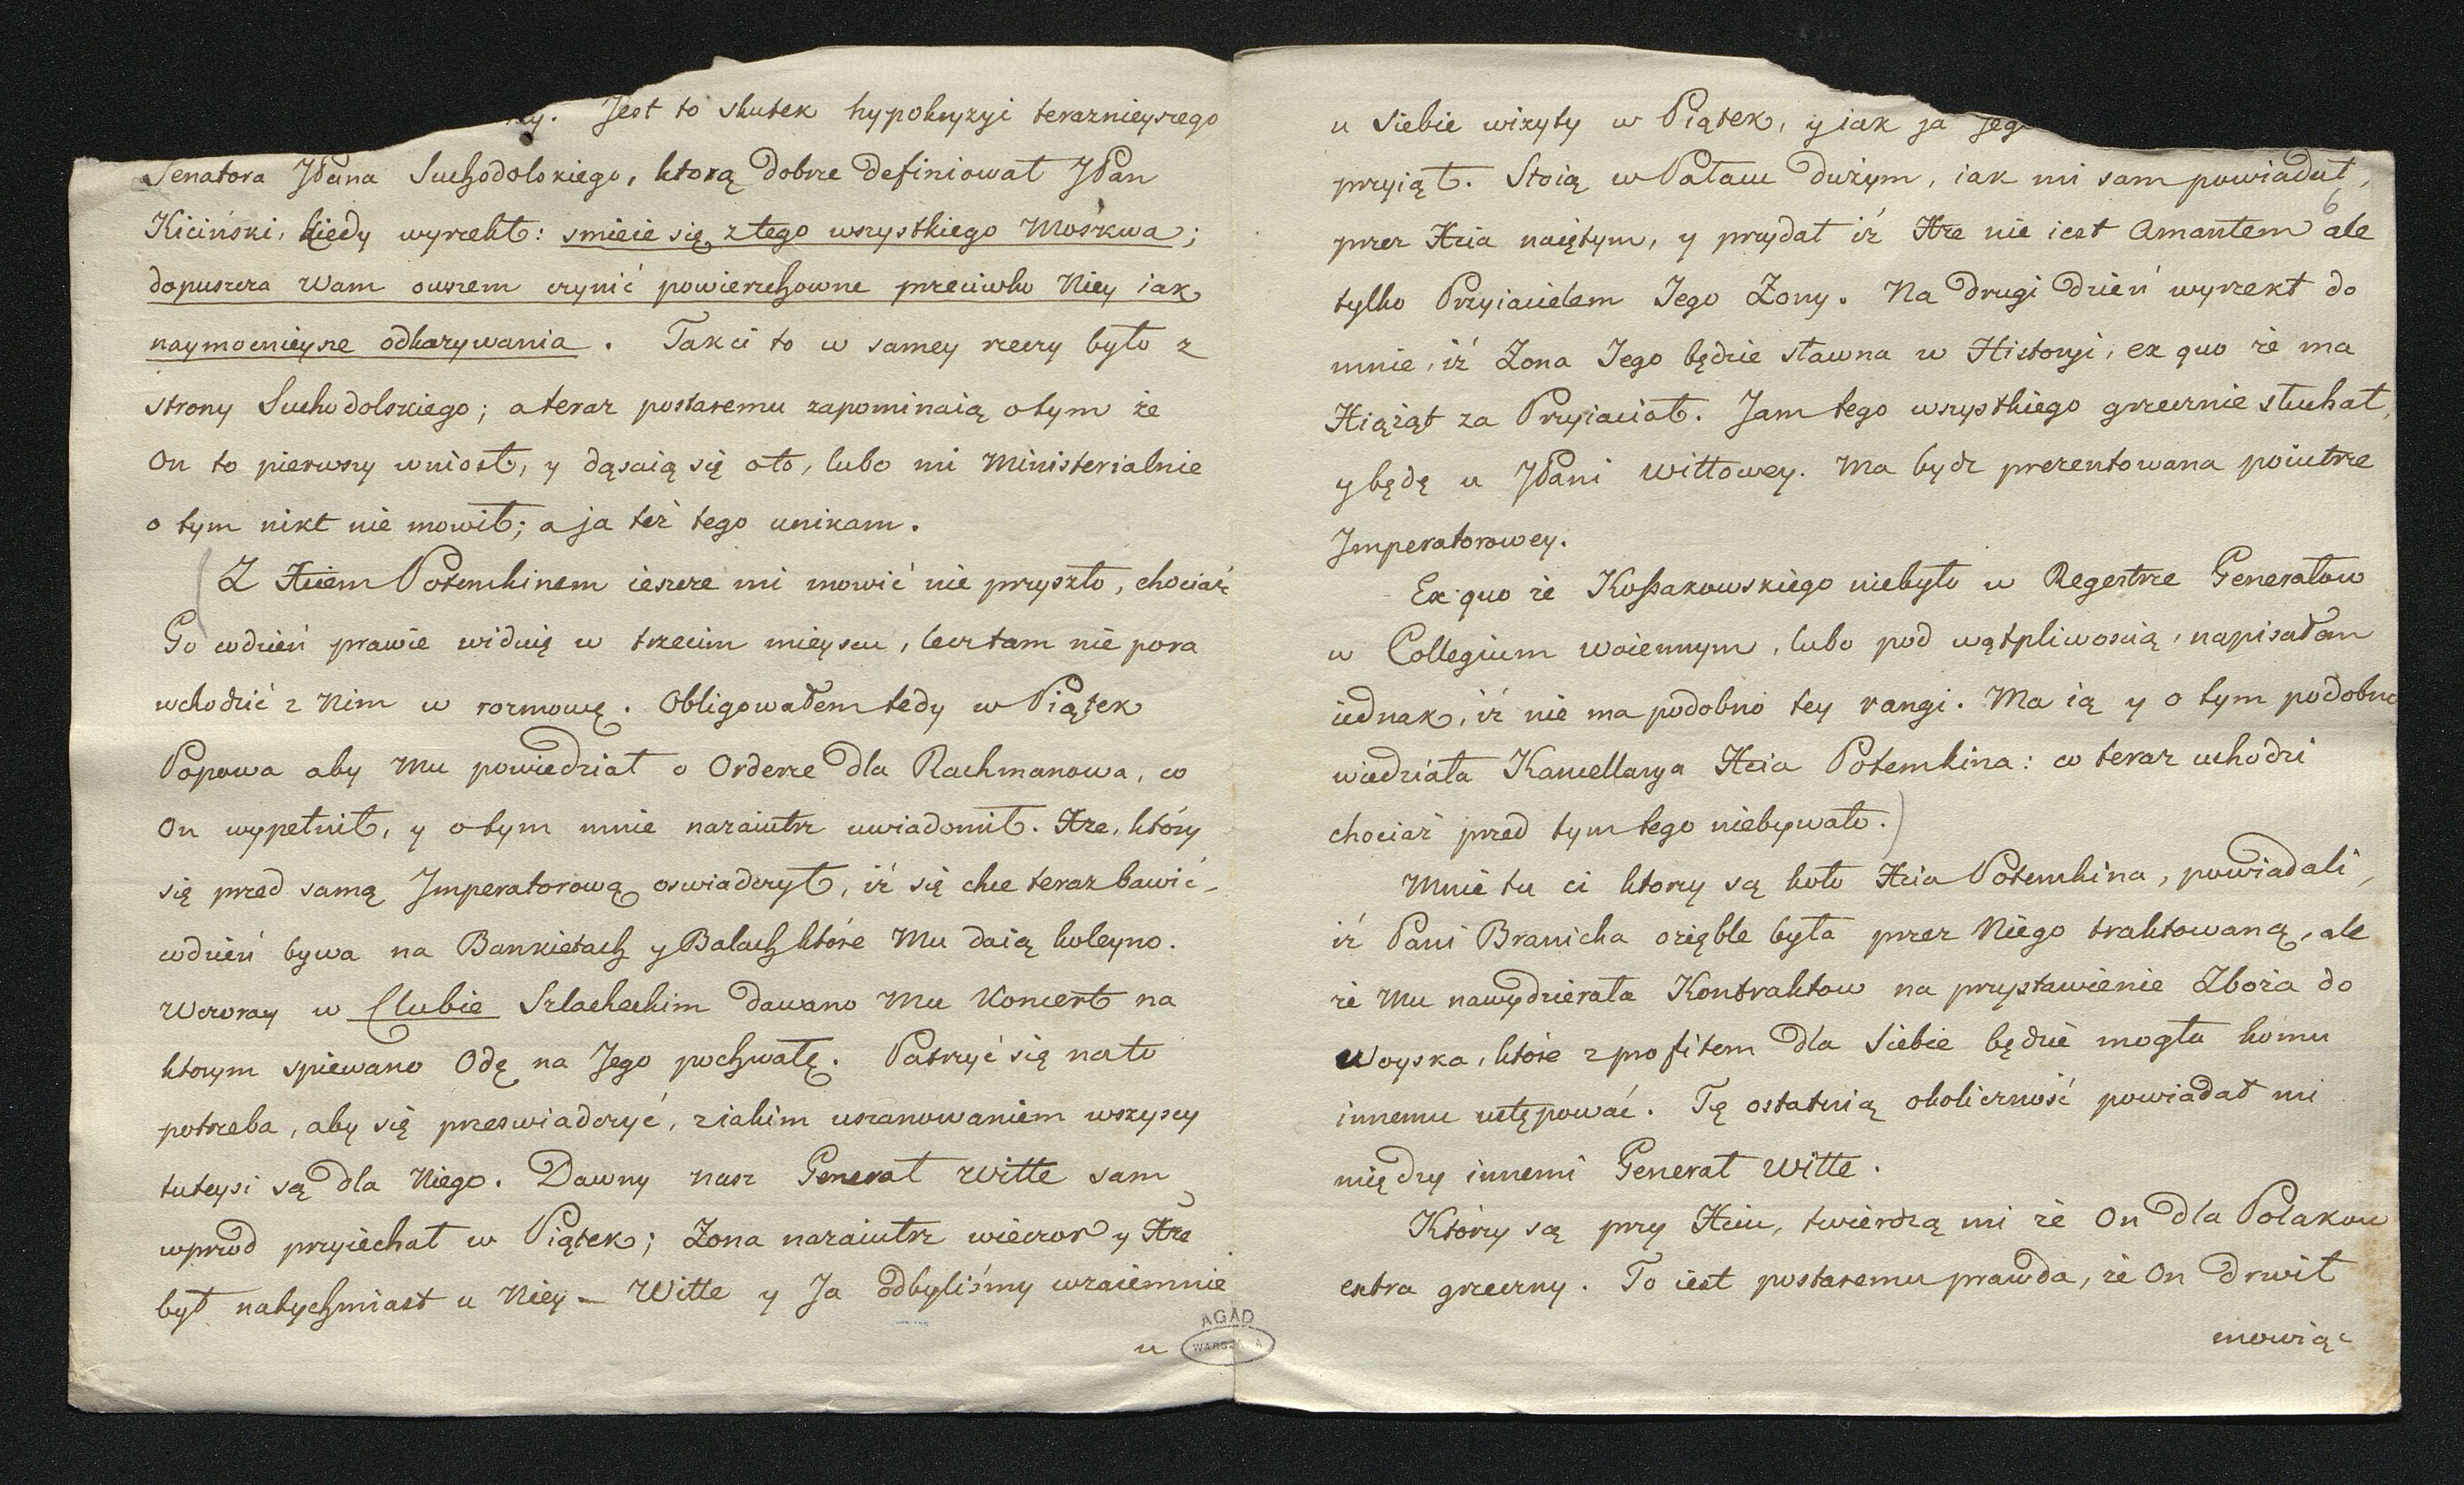 Jest to skutek hypokryzyi teraznieyszego
Senatora JPana Suchodolskiego, ktorą dobrze definiował JPan
Kiciński, kiedy wyrzekł: smieie się z tego wszystkiego Moskwa;
dopuszcza Wam owszem czynić powierzchowne przeciwko Niey iak
naymocnieysze odkazywania. Takci to w samey rzeczy było z
strony Suchodolskiego; a teraz postaremu zapominaią o tym że
On to pierwszy wniosł, y dąsaią się oto, lubo mi Ministerialnie
o tym nikt nie mowił; a ja też tego unikam.
Z Xciem Potemkinem ieszcze mi mowić nie przyszło, chociaż
Go codzień prawie widuię w trzecim mieyscu, lecz tam nie pora
wchodzić z Nim w rozmowę. Obligowałem tedy w Piątek
Popowa aby Mu powiedział o Orderze dla Rachmanowa, co
On wypełnił, y o tym mnie nazaiutrz uwiadomił. Xże, który
się przed samą Imperatorową oswiadczył, iż się chce teraz bawić,
codzień bywa na Bankietach y Balach które Mu daią koleyno.
Wczoray w Clubie Szlacheckim dawano Mu Koncert na
ktorym spiewano Odę na Jego pochwałę. Patrzyć się nato
potrzeba, aby się przeswiadczyć, z iakim uszanowaniem wszyscy
tuteysi są dla Niego. Dawny nasz Generał Witte sam
wprzod przyiechał w Piątek; Zona nazaiutrz wieczor y Xże
był natychmiast u Niey – Witte y Ja odbyliśmy wzaiemnie
u
AGAD
WARSZAWA
u Siebie wizyty w Piątek, y iak ja Jeg
przyiął. Stoią w Pałacu dużym, iak mi sam powiadał,
6
przez Xcia naiętym, y przydał iż Xże nie iest Amantem ale
tylko Przyiacielem Jego Zony. Na drugi dzień wyrzekł do
mnie, iż Zona Jego będzie sławna w Historyi, ex quo że ma
Xiążąt za Przyiacioł. Jam tego wszystkiego grzecznie słuchał,
y będę u JPani Wittowey. Ma bydz prezentowana poiutrze
Imperatorowey.
Ex quo że Kossakowskiego niebyło w Regestrze Generałow
w Collegium woiennym, lubo pod wątpliwoscią, napisałem
iednak, iż nie ma podobno tey rangi. Ma ią y o tym podobno
wiedziała Kancellarya Xcia Potemkina: co teraz uchodzi
chociaż przed tym tego niebywało.
Mnie tu ci ktorzy są koło Xcia Potemkina, powiadali,
iż Pani Branicka ozięble była przez Niego traktowaną, ale
że Mu nawydzierała Kontraktow na przystawienie Zboża do
Woyska, które z profitem dla Siebie będzie mogła komu
innemu ustępować. Tę ostatnią okoliczność powiadał mi
między innemi Generał Witte.
Którzy są przy Xciu, twierdzą mi że On dla Polakow
extra grzeczny. To iest postaremu prawda, że On drwił
mowiąc